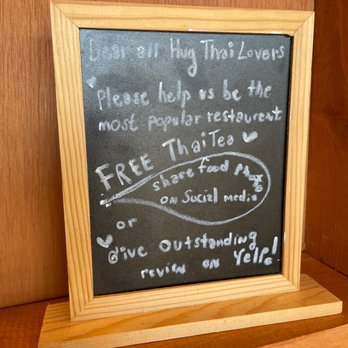 Dear all Hug Thai Lovers
Please help us be the
most popular restaurant
FREE Thai Tea
share food photo
on Social media
or
Give outstanding
review on Yelp!